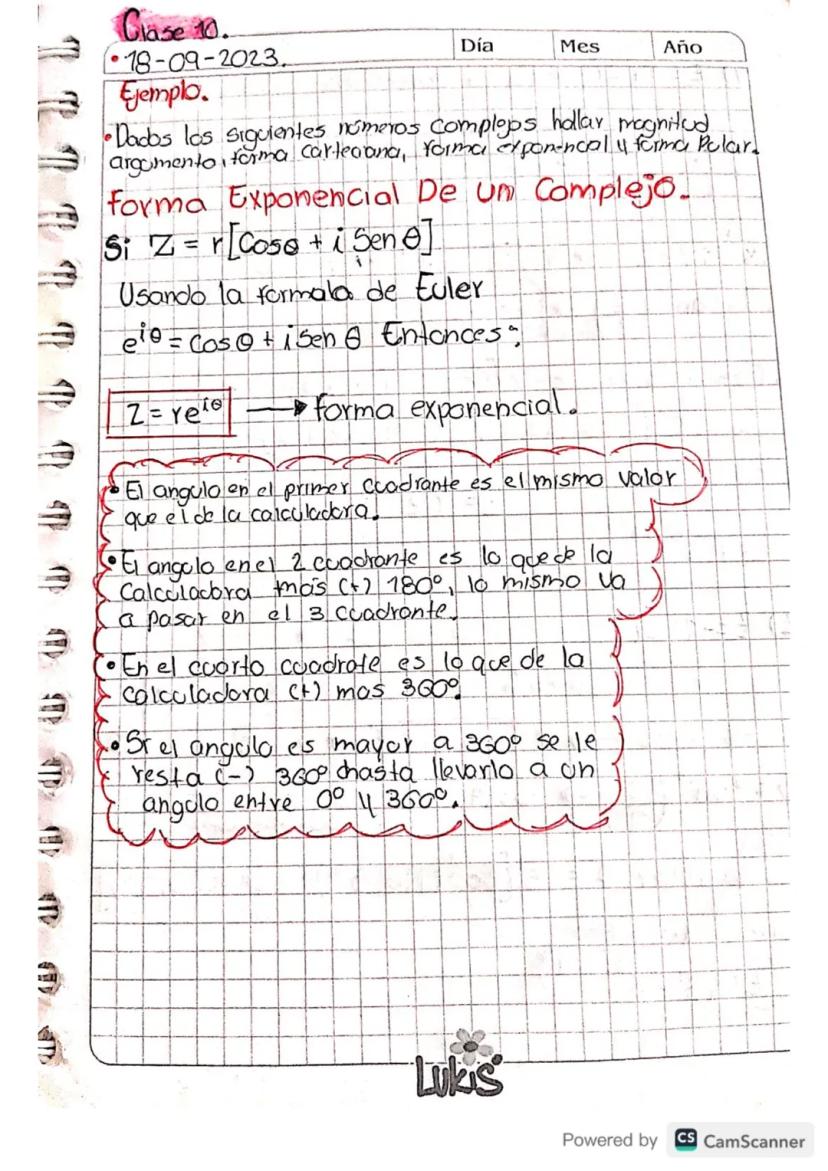 Clase 10.
Día Mes Año
• 18-09-2023.
Ejemplo.
• Dados los siguientes números complejos hallar magnitud
argumento, forma cartesiana, forma exponencial y forma Polar.
forma Exponencial De un Complejo.
Si Z = r[Cosθ + i Sen θ]
Usando la formala de Euler
e^iθ = Cos θ + i Sen θ Entonces:
Z = re^iθ → forma exponencial.
• El angulo en el primer cuadrante es el mismo valor
que el de la calculadora.
• El angulo en el 2 cuadrante es lo que de la
Calculadora más (+) 180°, lo mismo va
a pasar en el 3 cuadrante.
• En el cuarto cuadrate es lo que de la
calculadora (+) mas 360°
• Si el angulo es mayor a 360° se le
resta (-) 360° hasta llevarlo a un
angulo entre 0° y 360°.
Lukis
Powered by CS CamScanner